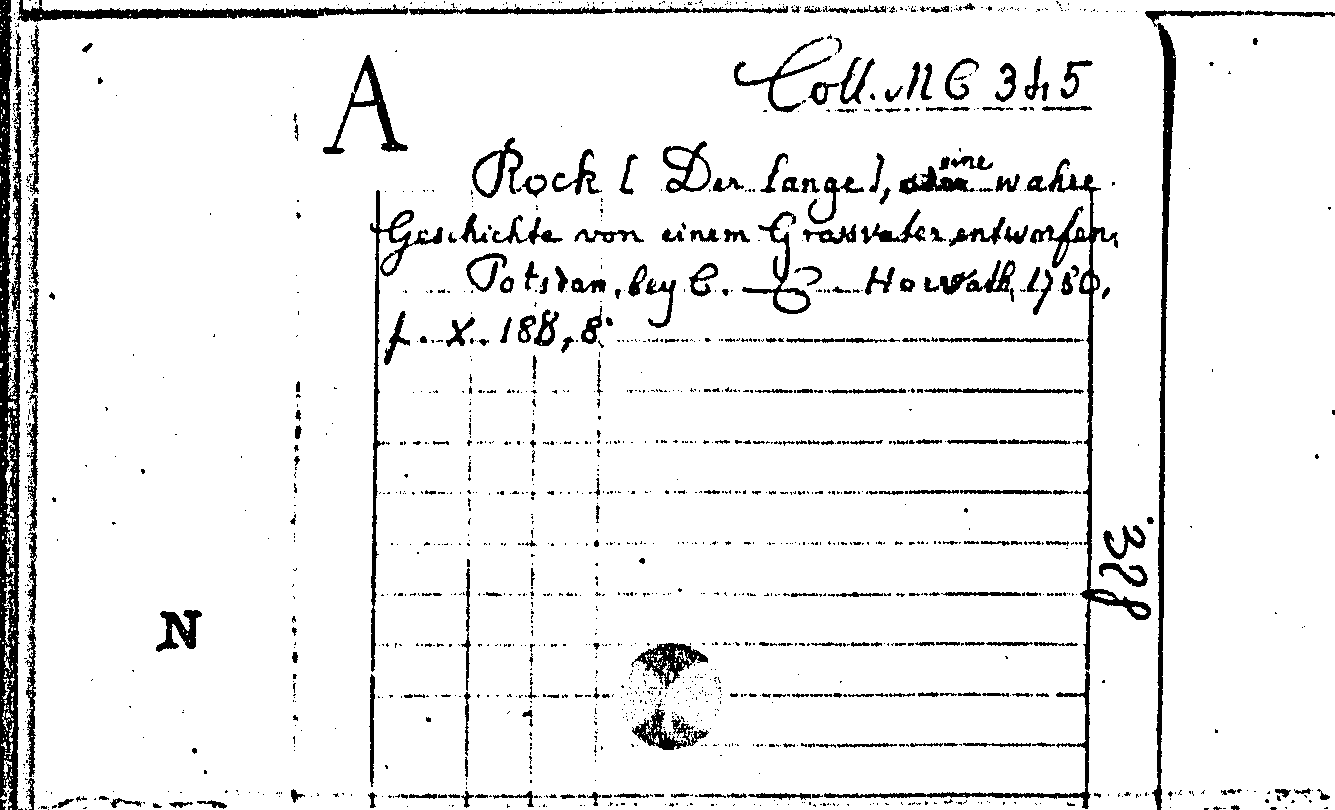 A
Coll. M C 345
Rock [Der lange], eine wahre
Geschichte von einem Grossvater entworfen.
Potsdam, bey C. C. Horvath, 1780,
p. X. 188, 8°
328
N